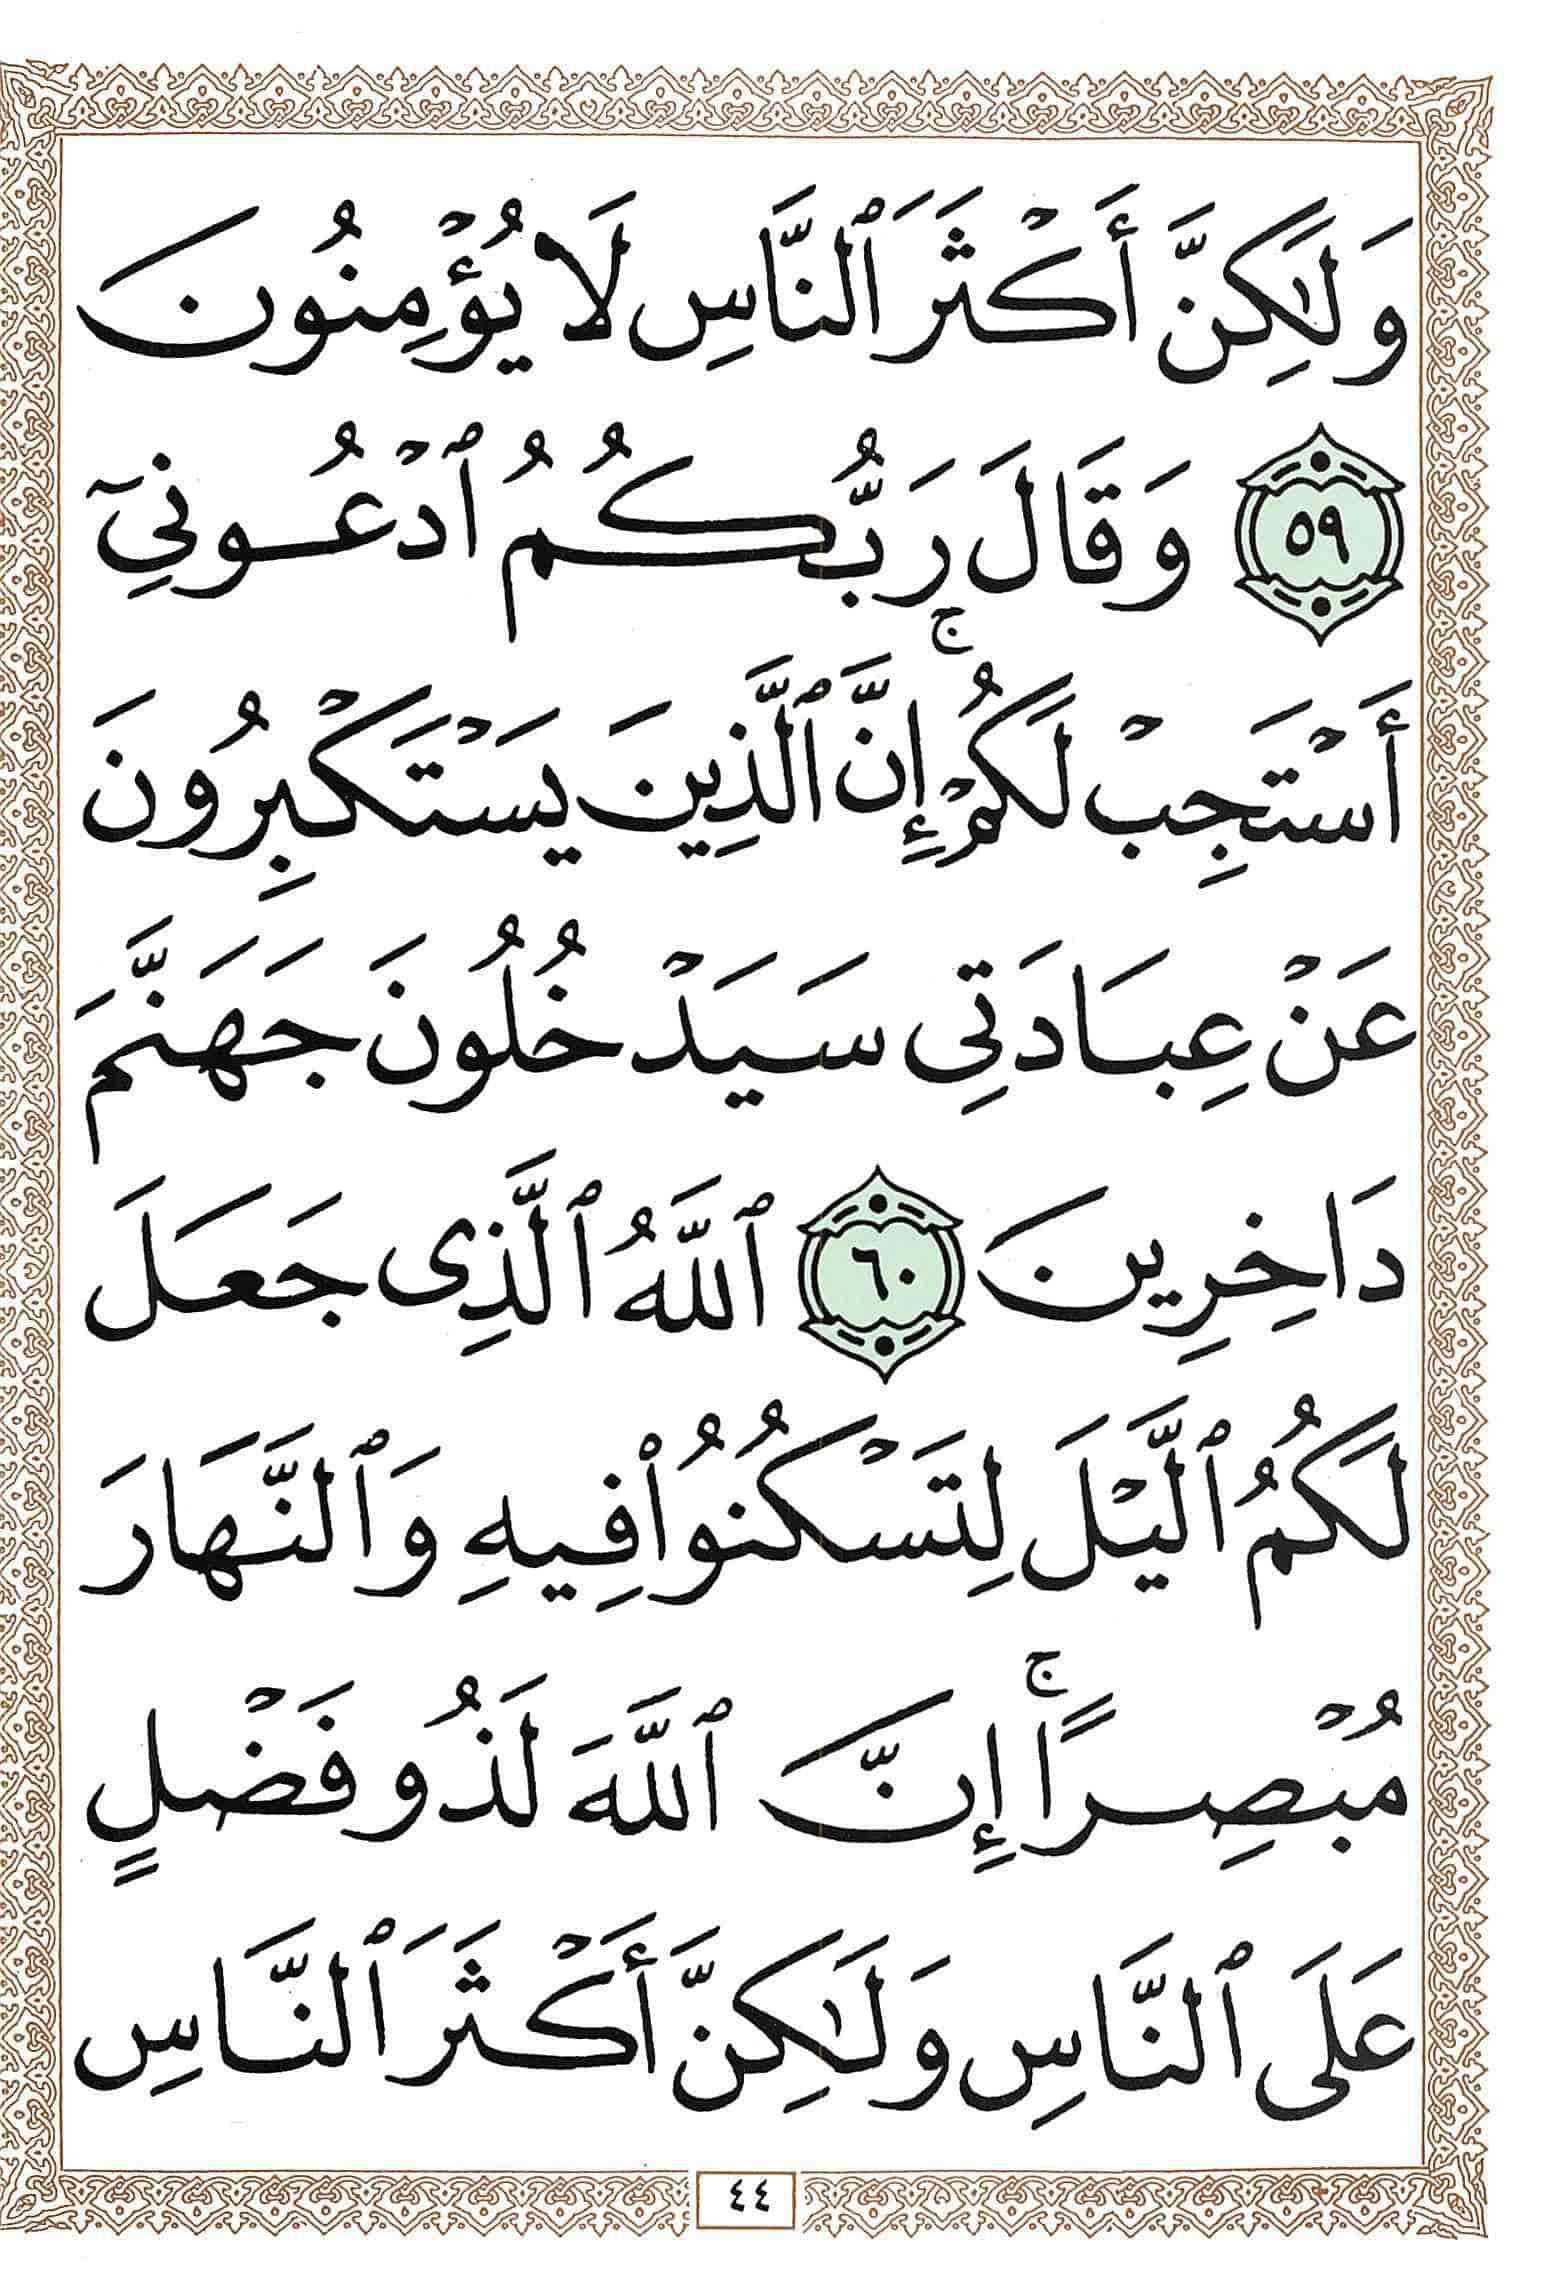 وَلَٰكِنَّ أَكْثَرَ ٱلنَّاسِ لَا يُؤْمِنُونَ
٥٩ وَقَالَ رَبُّكُمُ ٱدْعُونِىٓ
أَسْتَجِبْ لَكُمْ ۚ إِنَّ ٱلَّذِينَ يَسْتَكْبِرُونَ
عَنْ عِبَادَتِى سَيَدْخُلُونَ جَهَنَّمَ
دَاخِرِينَ ٦٠ ٱللَّهُ ٱلَّذِى جَعَلَ
لَكُمُ ٱلَّيْلَ لِتَسْكُنُوا۟ فِيهِ وَٱلنَّهَارَ
مُبْصِرًا ۚ إِنَّ ٱللَّهَ لَذُو فَضْلٍ
عَلَى ٱلنَّاسِ وَلَٰكِنَّ أَكْثَرَ ٱلنَّاسِ
٤٤